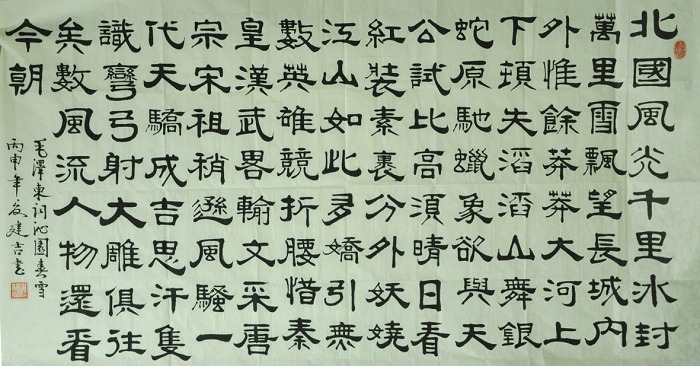 北國風光千里冰封
萬里雪飄望長城内
外惟餘莽莽大河上
下頓失滔滔山舞銀
蛇原馳蠟象欲與天
公試比高須晴日看
紅裝素裹分外妖嬈
江山如此多嬌引無
數英雄競折腰惜秦
皇漢武畧輸文采唐
宗宋祖稍遜風騷一
代天驕成吉思汗隻
識彎弓射大雕俱往
矣數風流人物還看
今朝
毛澤東詞沁園春雪
丙申年建吉書